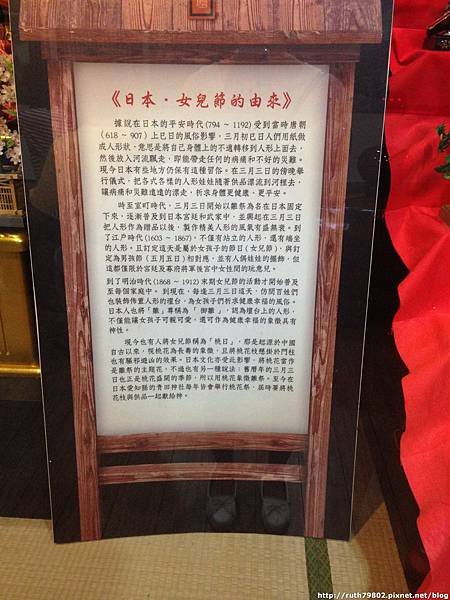 《日本‧女兒節的由來》
據說在日本的平安時代(794 ~ 1192)受到當時唐朝
(618 ~ 907)上巳日的風俗影響，三月初巳日人們用紙做
成人形狀，意思是將自己身體上的不適轉移到人形上面去，
然後放入河流飄走，即能帶走任何的病痛和不好的災難。
現今日本有些地方仍保有這種習俗。在三月三日的傍晚舉
行儀式，把各式各樣的人形娃娃隨著供品漂流到河裡去，
讓病痛和災難遠遠的漂走，祈求身體更健康、更平安。
時至室町時代，三月三日開始以雛祭為名在日本固定
下來，逐漸普及到日本宮廷和武家中，並興起在三月三日
把人形作為贈品以後，製作精美人形的風氣有盛無衰。到
了江戶時代(1603 ~ 1867)，不僅有站立的人形，還有端坐
的人形。且訂定這天是屬於女孩子的節日(女兒節)，與訂
定為男孩節(五月五日)相對應，並有人偶娃娃的擺飾，但
這都僅限於宮廷及幕府將軍後宮中女性間的玩意兒。
到了明治時代(1868 ~ 1912)末期女兒節的活動才開始普及
至每個家庭中。到現在，每逢三月三日這天，仿間百姓們
也裝飾佈置人形的擅台，為女孩子們祈求健康幸福的風俗。
日本人也將「雛」尊稱為「御雛」，認為壇台上的人形，
不僅能讓女孩子可親可愛，還可作為健康幸福的象徵具有
神性。
現今也有人將女兒節稱為「桃日」，那是起源於中國
自古以來，視桃花為長壽的象徵，且將桃花枝懸掛於門柱
也有驅移避凶的效果。日本文化亦受此影響，將桃花當作
是雛祭的主題花，不過也有另一種說法：舊曆年的三月三
日也正是桃花盛開的季節，所以用桃花象徵雛祭。至今在
日本愛知縣的青田神社每年皆會舉行桃花祭，屆時要將桃
花枝與供品一起獻給神。
http://ruth79802.pixnet.net/blog